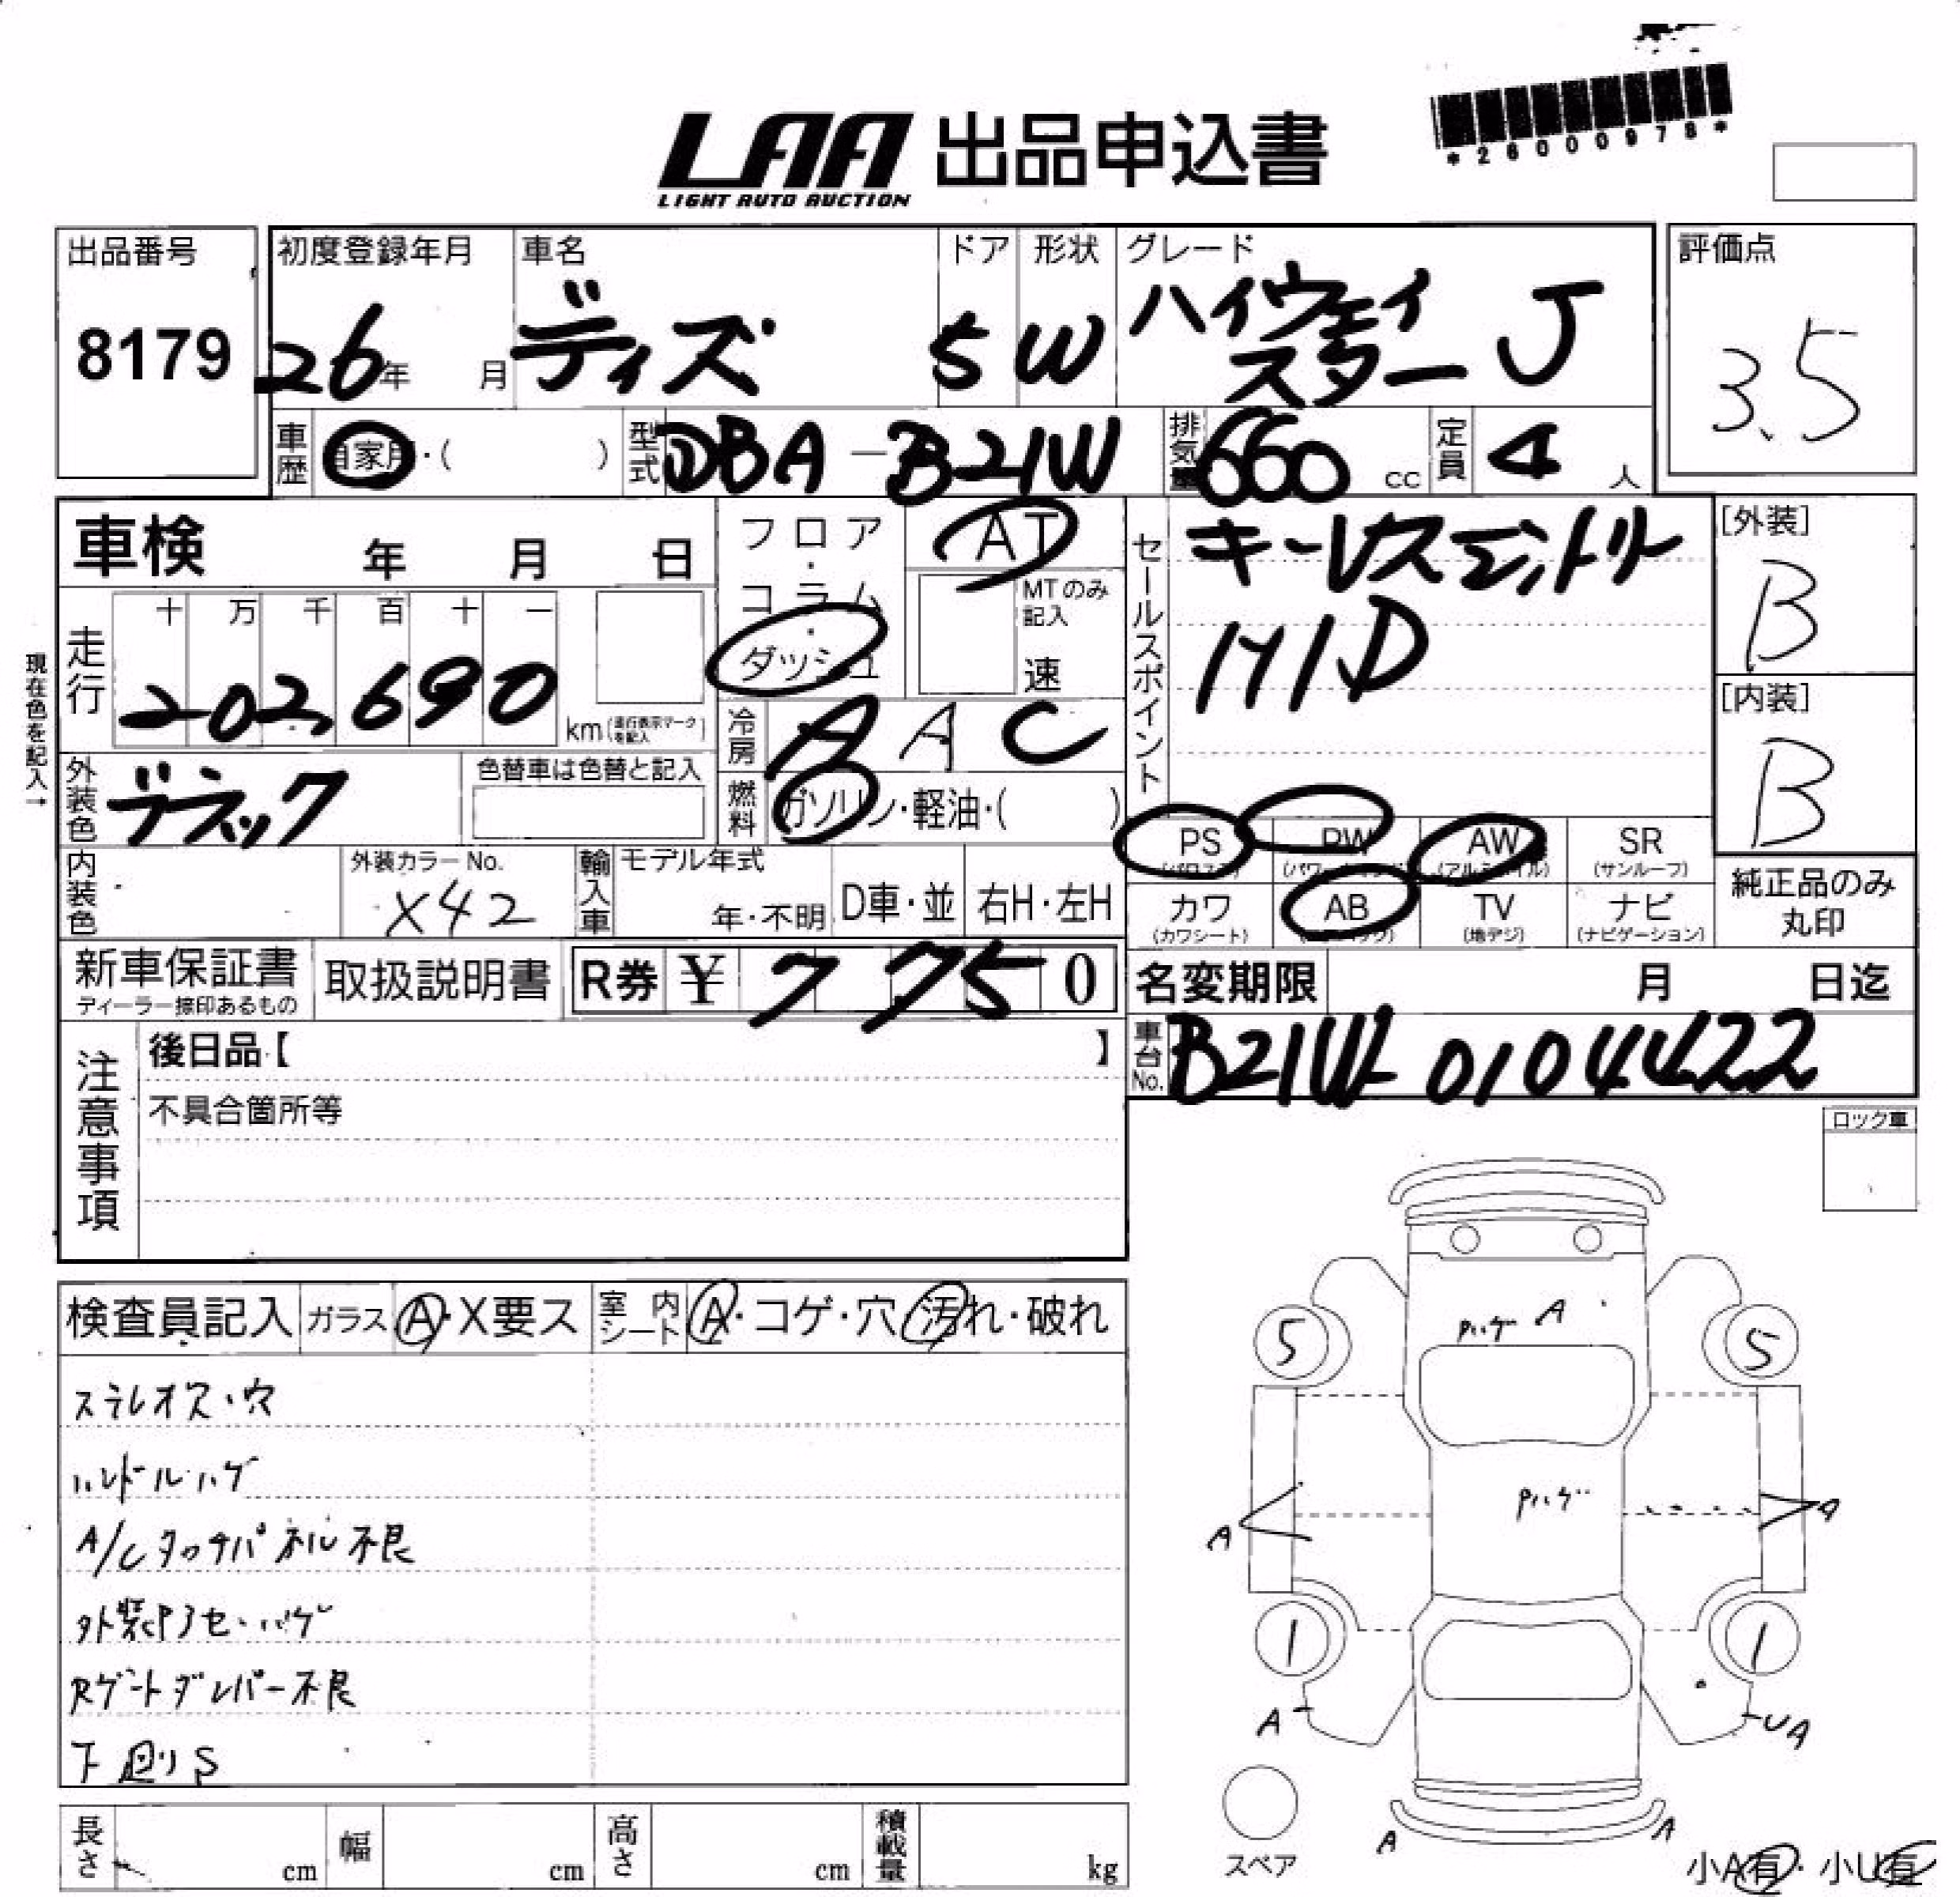 *26000978*
LAA 出品申込書
LIGHT AUTO AUCTION
出品番号 初度登録年月 車名 ドア 形状 グレード 評価点
8179 26年 月 ディズ 5 W ハイウェイスター J 3.5
車歴 自家用・( ) 型式 DBA-B21W 排気量 660 cc 定員 4 人
車検 年 月 日 フロア・コラム・ダッシュ AT セールスポイント キーレスエントリー [外装] B
現在色を記入→
走行 十 万 千 百 十 一 MTのみ記入 速 HID
202,690 km 冷房 AAC [内装] B
外装色 ブラック 色替車は色替と記入 燃料 ガソリン・軽油・( )
PS PW AW SR
(アルミホイル) (サンルーフ)
内装色 外装カラーNo. X42 輸入車 モデル年式 年・不明 D車・並 右H・左H
カワ AB TV ナビ 純正品のみ丸印
(カワシート) (地デジ) (ナビゲーション)
新車保証書 取扱説明書 R券 ¥ 7 750 名変期限 月 日迄
ディーラー捺印あるもの
車台No. B21W-0104422
注意事項 後日品【 】
不具合箇所等
ロック車
検査員記入 ガラス A・X要ス 室内シート A・コゲ・穴・汚れ・破れ
ステレオヌ・穴
ハンドルハゲ
A/Cタッチパネル不良
Rゲートダンパー不良
下回りS
Pハゲ A
5 5
Pハゲ
A A
1 1
A UA
A A
スペア
小A有・小U有
長さ cm 幅 cm 高さ cm 積載量 kg